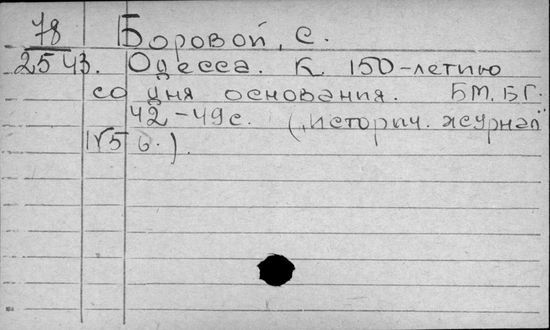 78 Боровой, С.
2543. Одесса. К 150-летию
со дня основания. БМ. БГ.
42-49 с. („Историч. журнал"
№5 6.).